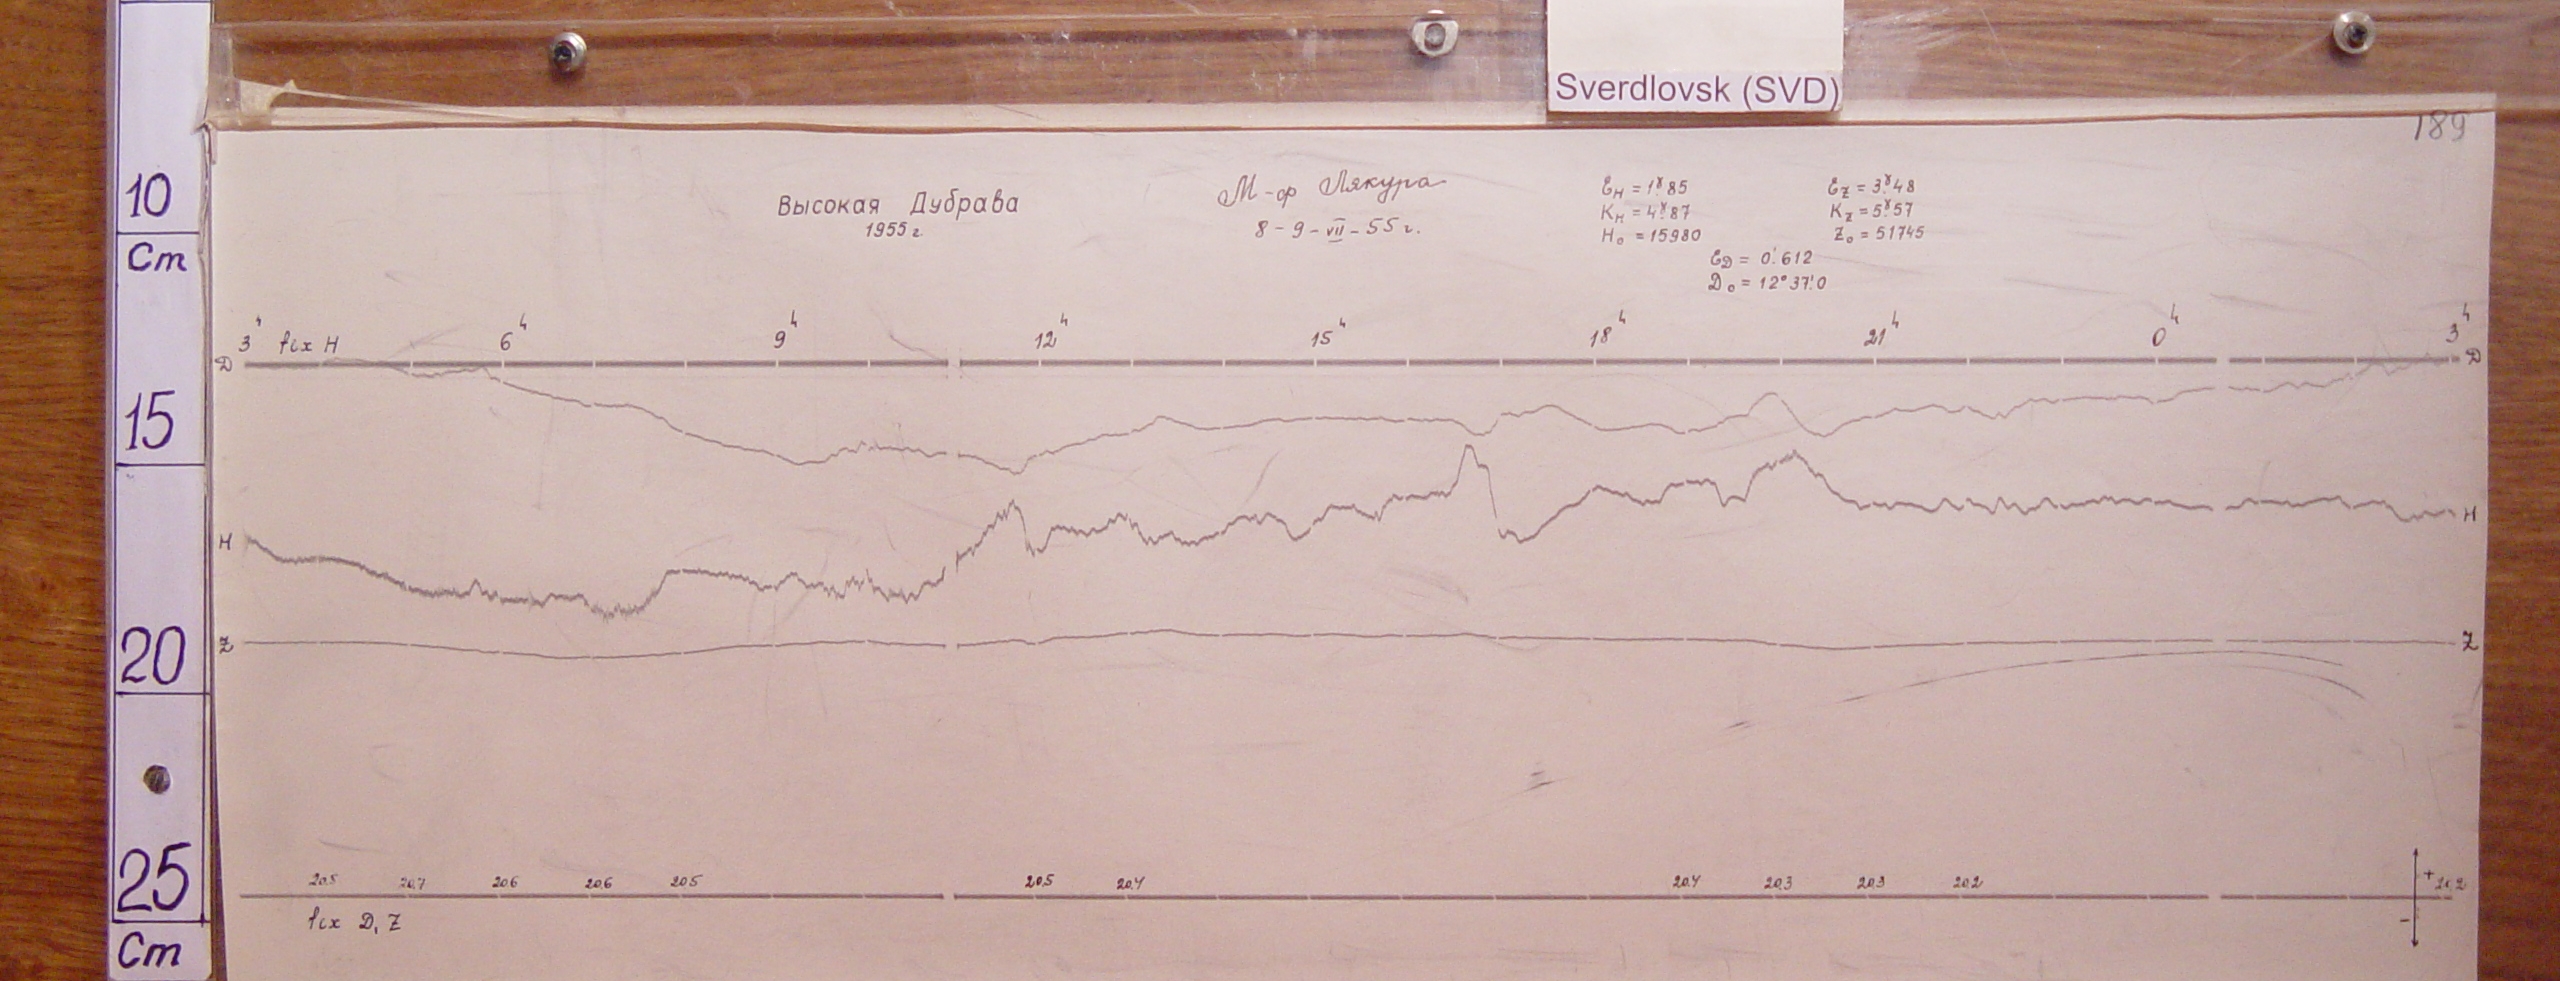 Sverdlovsk (SVD)
189
10
Cm
15
20
25
Cm
Высокая Дубрава
1955 г.
М-ф Лякура
8-9-VII-55 г.
Ɛн = 1ˠ.85
Kн = 4ˠ.87
H₀ = 15980
Ɛz = 3ˠ.48
Kz = 5ˠ.57
Z₀ = 51745
ƐD = 0'.612
D₀ = 12°37'.0
3ʰ fix H 6ʰ 9ʰ 12ʰ 15ʰ 18ʰ 21ʰ 0ʰ 3ʰ
D D
H H
Z Z
20.5 20.7 20.6 20.6 20.5 20.5 20.4 20.4 20.3 20.3 20.2
+
fix D, Z
-